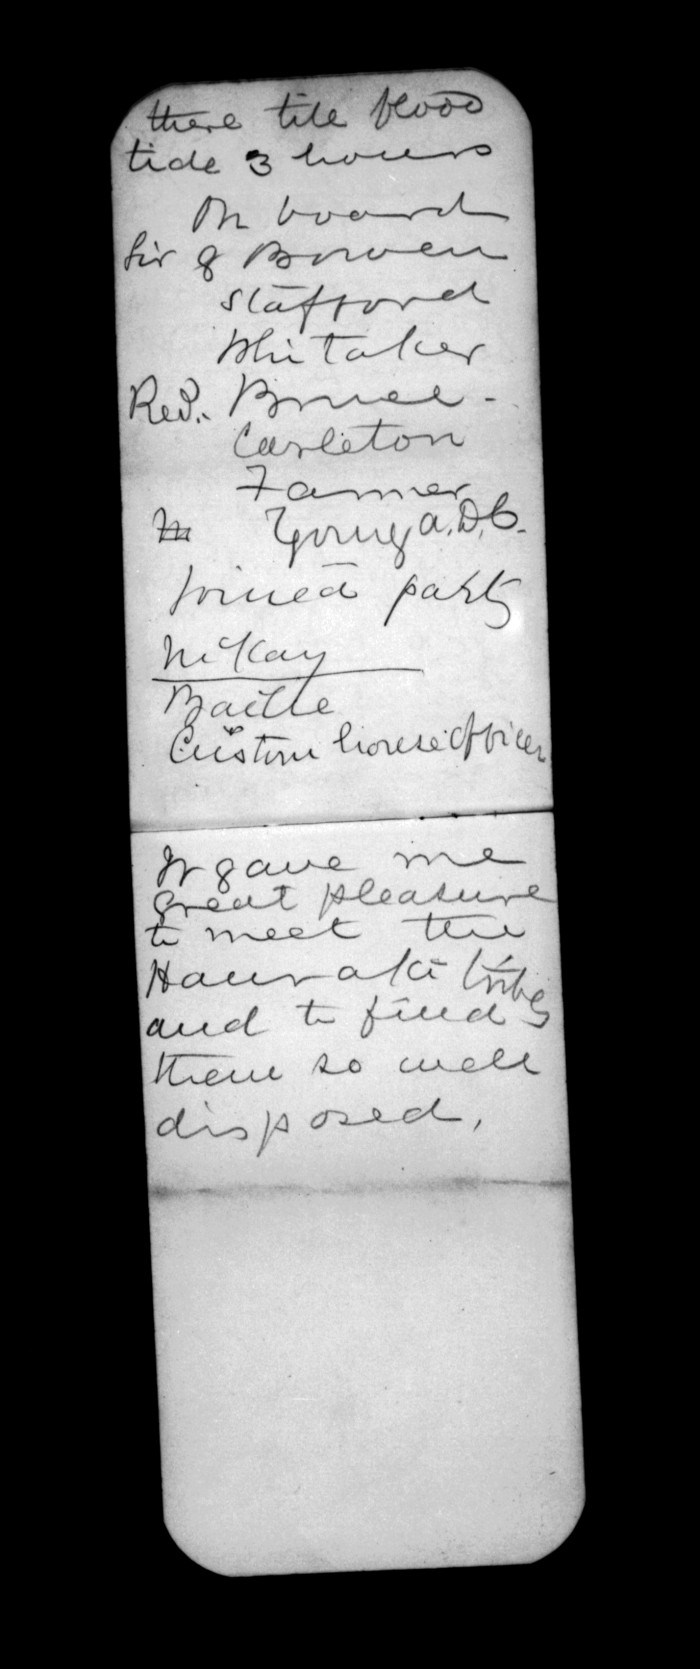 there till flood
tide 3 hours
On board
Sir G Bowen
Stafford
Whitaker
Rev. Bruce -
Carleton
Farmer
Young A.D.C.
Joined party
McKay
Baillie
Custom house officer
It gave me
great pleasure
to meet the
Hauraki tribes
and to find
them so well
disposed,